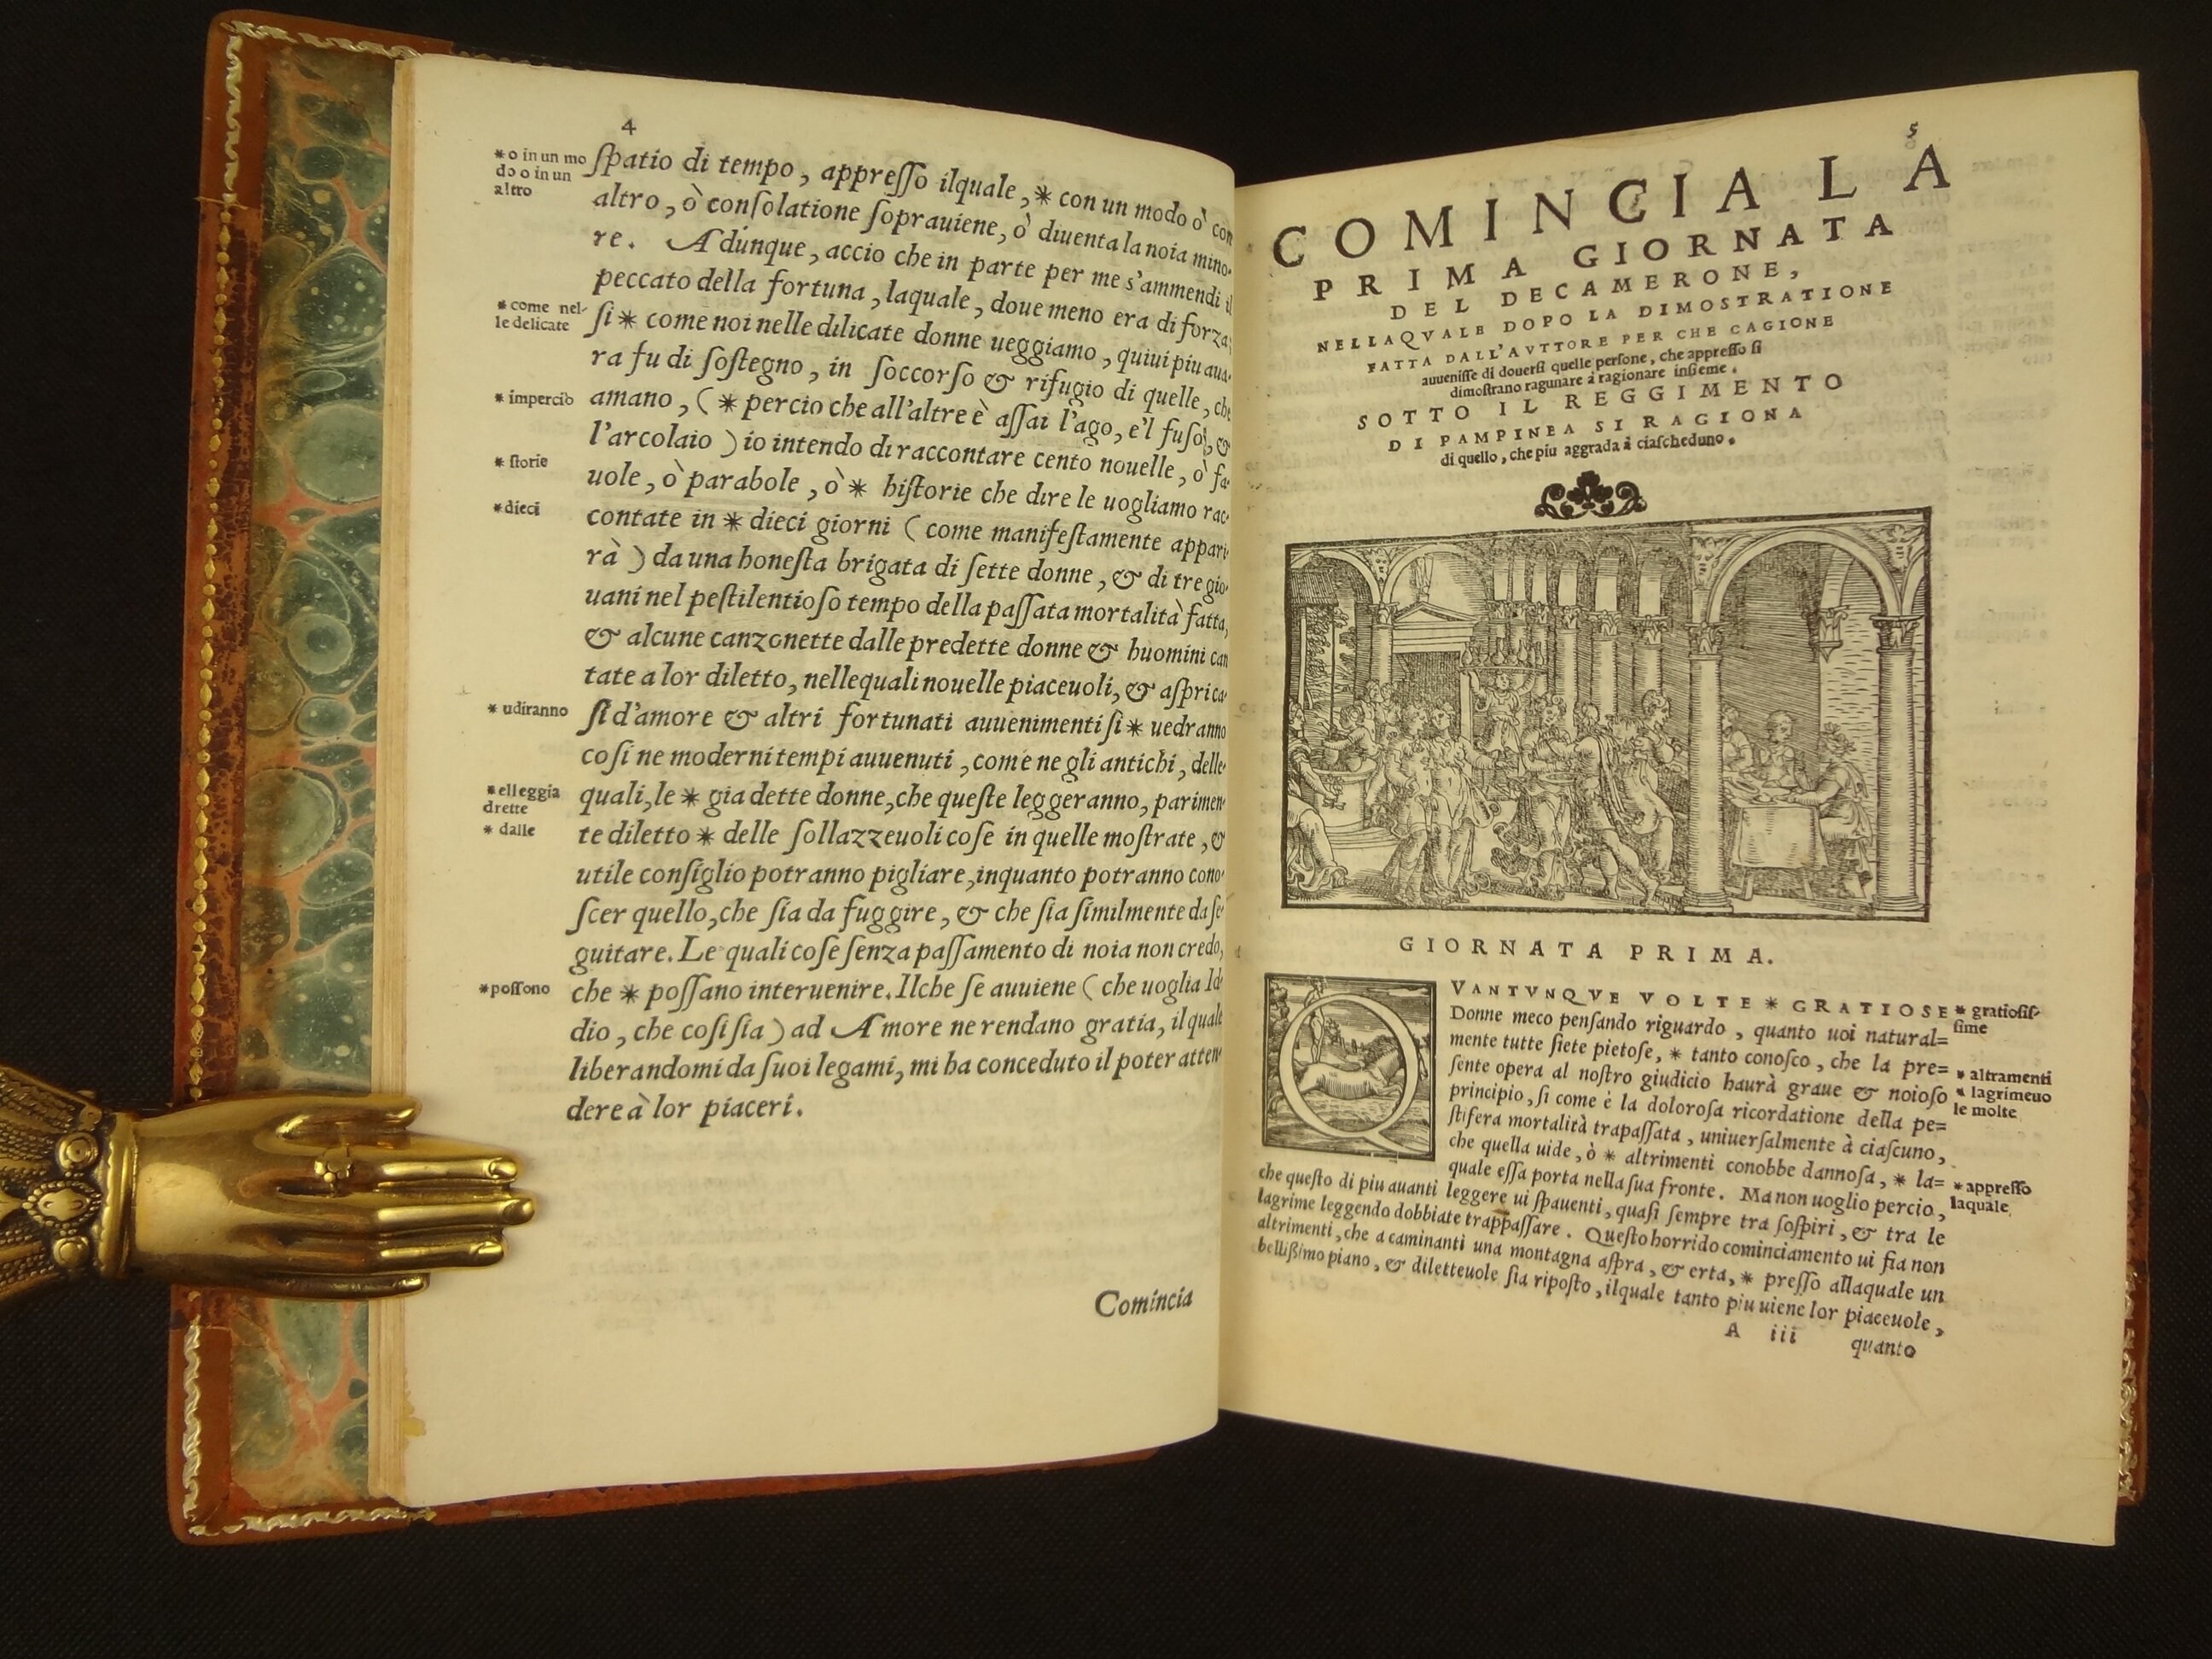 4
*o in un mo
do o in un
altro
ſpatio di tempo, appreſſo ilquale, * con un modo ò con
altro, ò conſolatione ſoprauiene, ò diuenta la noia mino-
re. Adunque, accio che in parte per me s'ammendi il
peccato della fortuna, laquale, doue meno era di forza,
*come nel-
le delicate
ſi * come noi nelle dilicate donne ueggiamo, quiui piu aua-
ra fu di ſoſtegno, in ſoccorſo & rifugio di quelle, che
*impercio
amano, (* percio che all'altre è aſſai l'ago, e'l fuſo, &
l'arcolaio) io intendo di raccontare cento nouelle, ò fa-
*ſtorie
uole, ò parabole, ò * hiſtorie che dire le uogliamo rac-
*dieci
contate in * dieci giorni (come manifeſtamente appari-
rà) da una honeſta brigata di ſette donne, & di tre gio-
uani nel peſtilentioſo tempo della paſſata mortalità fatta,
& alcune canzonette dalle predette donne & huomini can
tate a lor diletto, nellequali nouelle piaceuoli, & aſpri ca-
*udiranno
ſi d'amore & altri fortunati auuenimenti ſi * uedranno
coſi ne moderni tempi auuenuti, come ne gli antichi, delle-
*elleggia
drette
quali, le * gia dette donne, che queſte leggeranno, parimen-
*dalle
te diletto * delle ſollazzeuoli coſe in quelle moſtrate, &
utile conſiglio potranno pigliare, inquanto potranno cono-
ſcer quello, che ſia da fuggire, & che ſia ſimilmente da ſe-
guitare. Le quali coſe ſenza paſſamento di noia non credo,
*poſſono
che * poſſano interuenire. Ilche ſe auuiene (che uoglia Id-
dio, che coſi ſia) ad Amore ne rendano gratia, il quale
liberandomi da ſuoi legami, mi ha conceduto il poter atten-
dere à lor piaceri.
Comincia
5
COMINCIA LA
PRIMA GIORNATA
DEL DECAMERONE,
NELLAQVALE DOPO LA DIMOSTRATIONE
FATTA DALL'AVTTORE PER CHE CAGIONE
auueniſſe di douerſi quelle perſone, che appreſſo ſi
dimoſtrano ragunare à ragionare inſieme.
SOTTO IL REGGIMENTO
DI PAMPINEA SI RAGIONA
di quello, che piu aggrada à ciaſcheduno.
GIORNATA PRIMA.
QVANTVNQVE VOLTE * GRATIOSE
*gratioſiſ-
ſime
Donne meco penſando riguardo, quanto uoi natural=
mente tutte ſiete pietoſe, * tanto conoſco, che la pre=
ſente opera al noſtro giudicio haurà graue & noioſo
*altramenti
*lagrimeuo
le molte
principio, ſi come è la doloroſa ricordatione della pe=
ſtifera mortalità trapaſſata, uniuerſalmente à ciaſcuno,
che quella uide, ò * altrimenti conobbe dannoſa, * la=
*appreſſo
laquale
quale eſſa porta nella ſua fronte. Ma non uoglio percio,
che queſto di piu auanti leggere ui ſpauenti, quaſi ſempre tra ſoſpiri, & tra le
lagrime leggendo dobbiate trappaſſare. Queſto horrido cominciamento ui fia non
altrimenti, che a caminanti una montagna aſpra, & erta, * preſſo allaquale un
belliſſimo piano, & diletteuole ſia ripoſto, ilquale tanto piu uiene lor piaceuole,
A iii
quanto